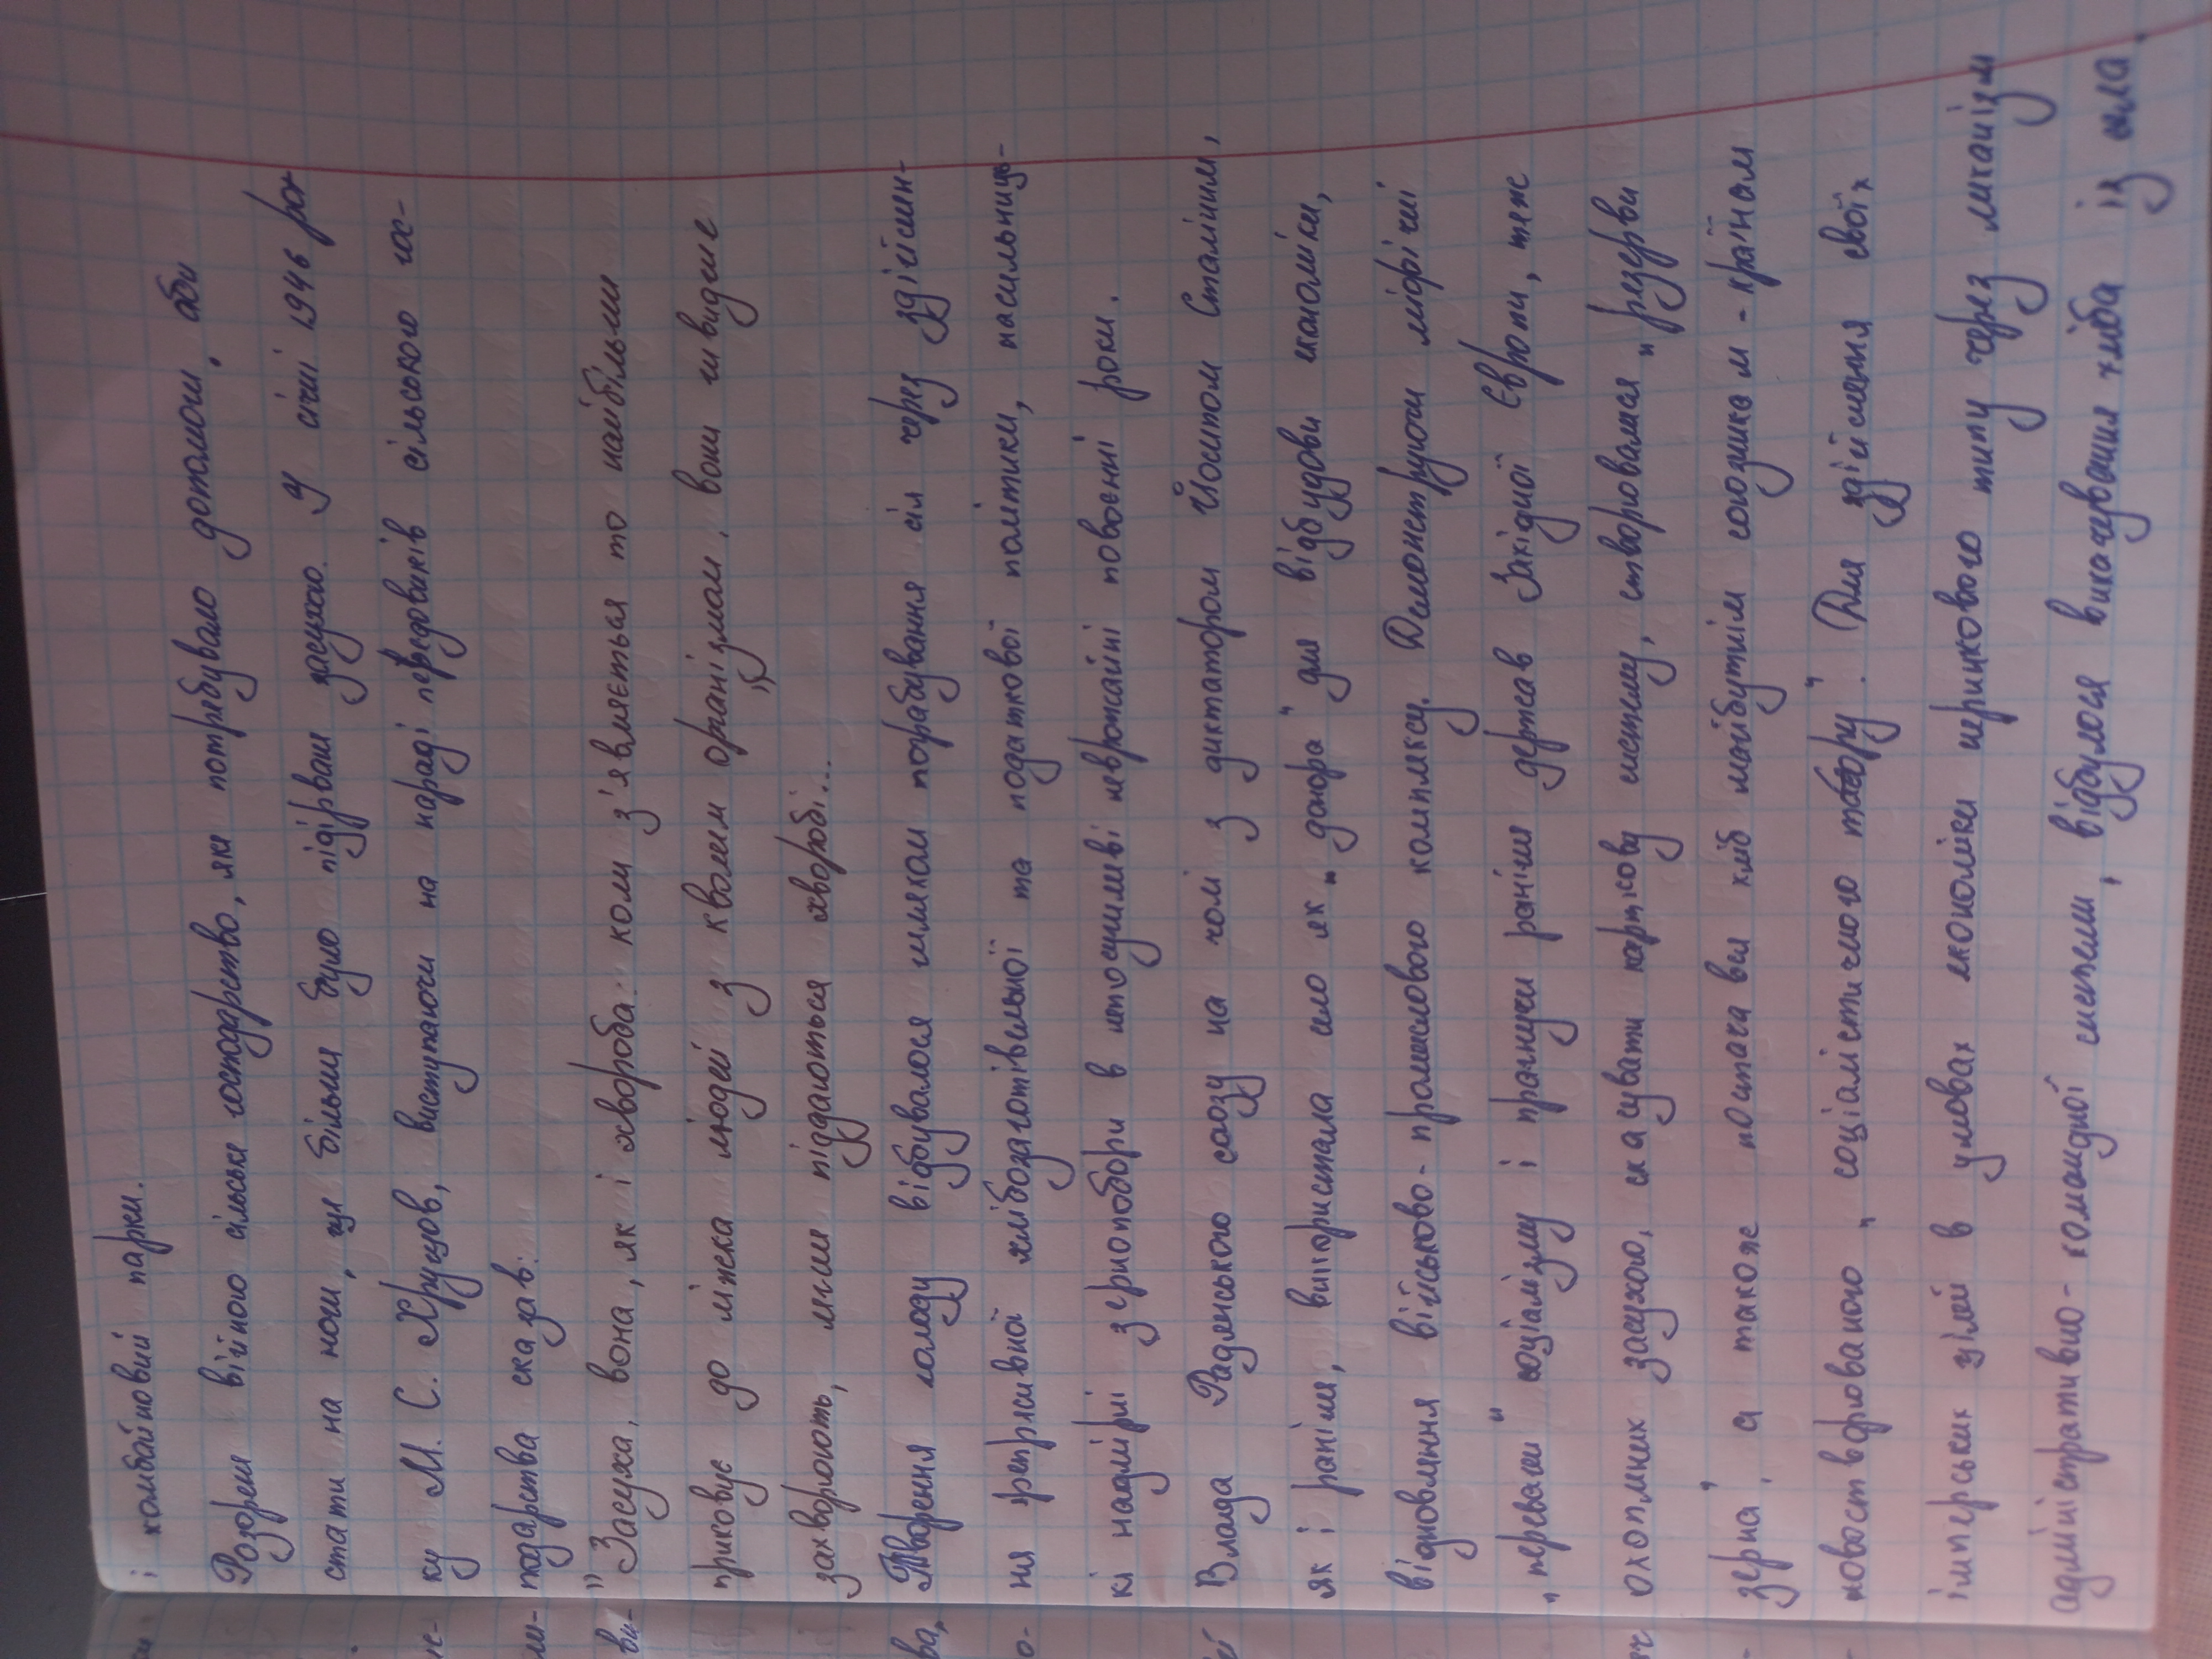 і комбайновий парки.
Розорене війною сільське господарство, яке потребувало допомоги, аби
стати на ноги, ще більше було підірване засухою. У січні 1946 ро
ку М. С. Хрущов, виступаючи на нараді передовиків сільського гос-
подарства сказав:
"Засуха, вона, як і хвороба: коли з'являється то найбільше
приковує до ліжка людей з кволим організмом, вони швидше
захворюють, легше піддаються хворобі..."
Творення голоду відбувалося шляхом пограбування сіл через здійснен-
ня репресивної хлібозаготівельної та податкової політики, насильниць-
кі надмірні зернопобори в непосушливі неврожайні повоєнні роки.
Влада Радянського союзу на чолі з диктатором Йосипом Сталіним,
як і раніше, використала село як „донора" для відбудови економіки,
відновлення військово-промислового комплексу. Демонструючи міфічні
„переваги" соціалізму і прагнучи раніше держав Західної Європи, теж
охоплених засухою, скасувати карткову систему, створювалися „резерви
зерна", а також постачався хліб майбутнім союзникам - країнам
новоствореного „соціалістичного табору". Для здійснення своїх
імперських цілей в умовах економіки неринкового типу через механізм
адміністративно-командної системи, відбулося викачування хліба із села.